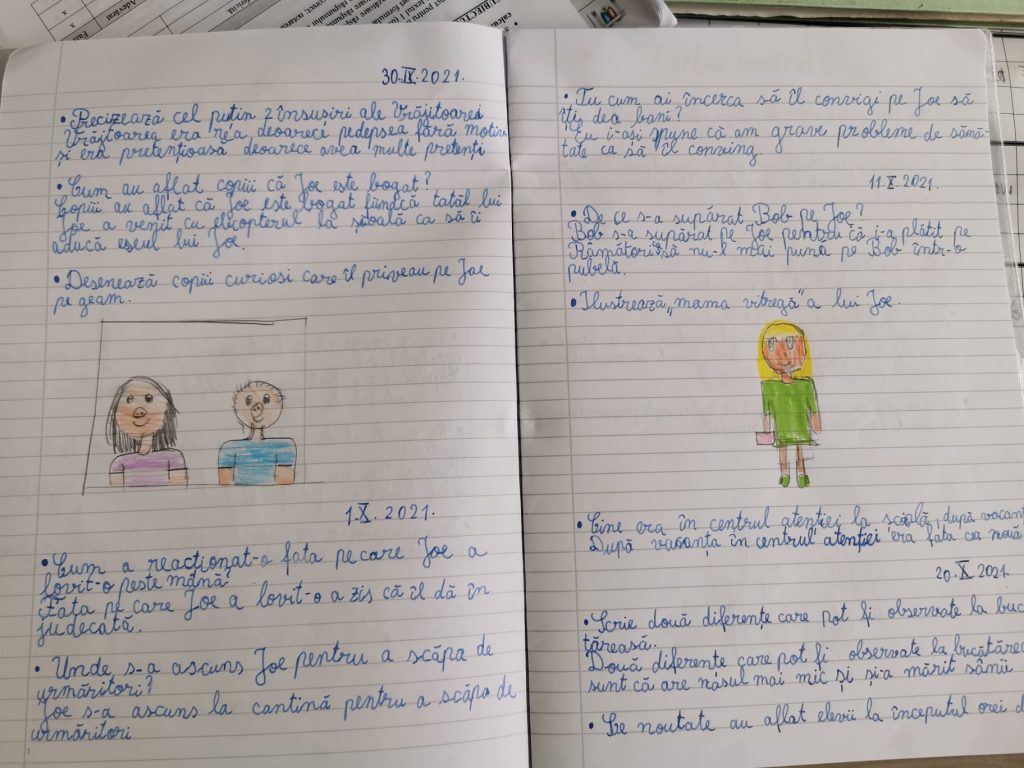 30.IX.2021.
• Precizează cel puțin 2 însușiri ale Vrăjitoarei
Vrăjitoarea era rea, deoareci pedepsea fără motiv
și era pretențioasă deoarece avea multe pretenți
• Cum au aflat copiii că Joe este bogat?
Copiii au aflat că Joe este bogat fiindcă tatăl lui
Joe a venit cu elicopterul la școală ca să îi
aducă eseul lui Joe.
• Desenează copiii curioși care îl priveau pe Joe
pe geam.
1.X.2021.
• Cum a reacționat-o fata pe care Joe a
lovit-o peste mână?
Fata pe care Joe a lovit-o a zis că îl dă în
judecată.
• Unde s-a ascuns Joe pentru a scăpa de
urmăritori?
Joe s-a ascuns la cantină pentru a scăpa de
urmăritori
• Tu cum ai încerca să îl convigi pe Joe să
îți dea bani?
Eu i-ași spune că am grave probleme de sănă-
tate ca să îl conving
11.X.2021.
• De ce s-a supărat Bob pe Joe?
Bob s-a supărat pe Joe pentru că i-a plătit pe
Râmători să nu-l mai pună pe Bob într-o
pubelă.
• Ilustrează „mama vitregă" a lui Joe.
• Cine era în centrul atenției la școală, după
După vacanța în centrul atenției era fata cea nouă
20.X.2021.
• Scrie două diferențe care pot fi observate la bucă
tăreasă.
Două diferențe care pot fi observate la
sunt că are nasul mai mic și și-a mărit sânii
• Ce noutate au aflat elevii la începutul orei